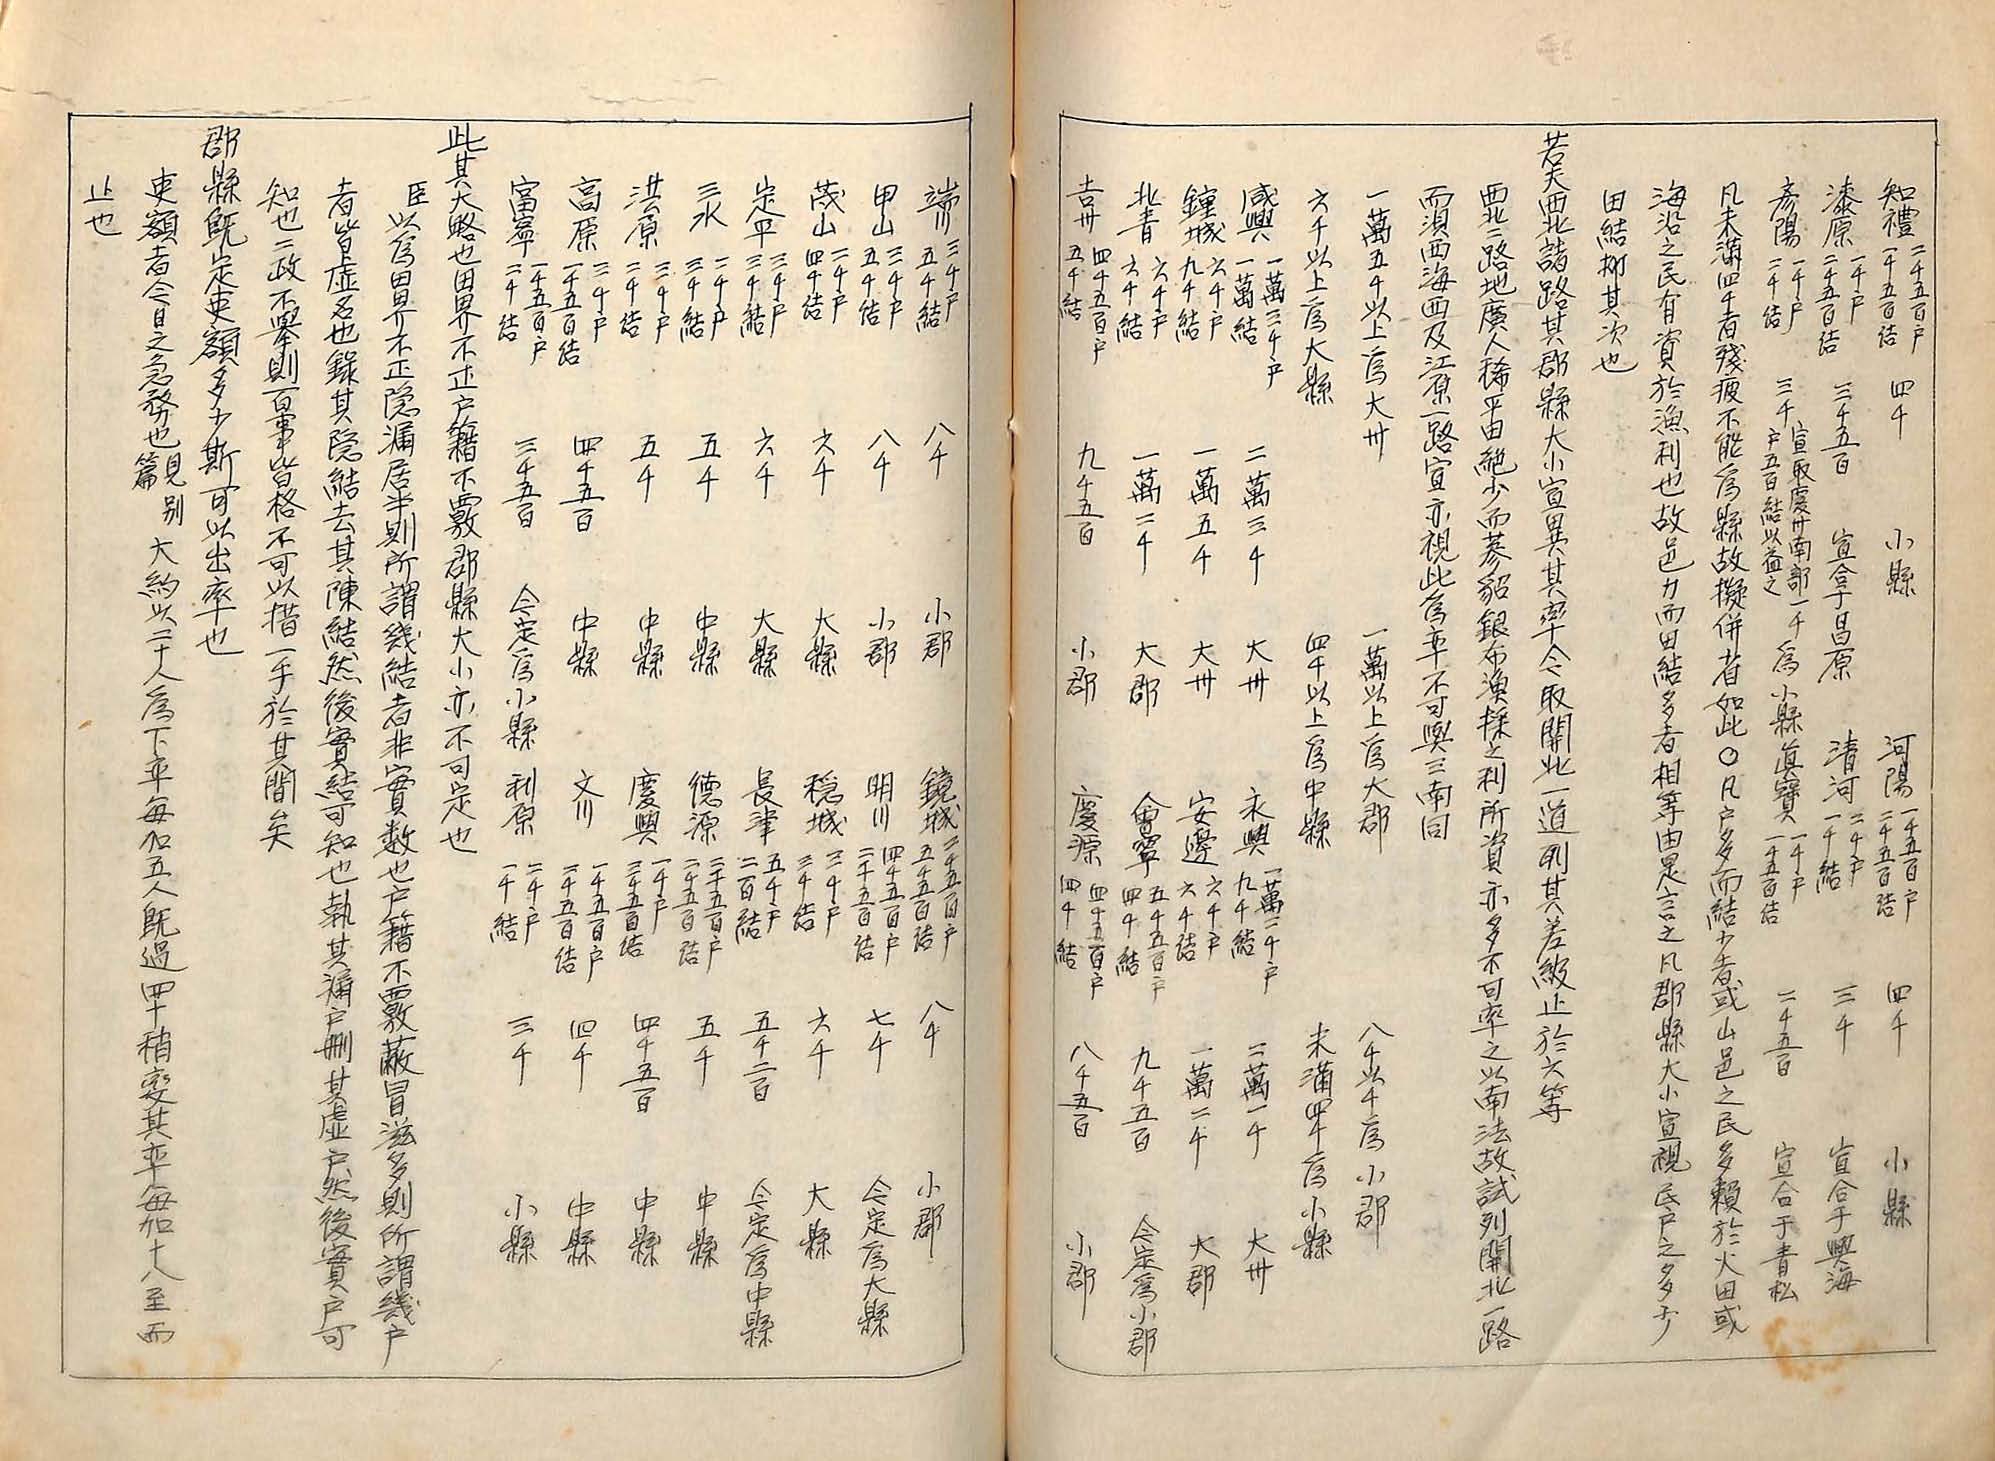 知禮 二千五百户 一千五百结 四千 小縣 河陽 一千五百户 二千五百结 四千 小縣
漆原 一千户 二千五百结 三千五百 宜合于昌原 清河 二千户 一千結 三千 宜合于興海
彦陽 一千户 二千结 三千 宜取慶州南部一千户五百結以益之 爲小縣 眞寶 一千户 一千五百结 二千五百 宜合于青松
凡未滿四千者殘疲不能爲縣故擬併省如此〇凡户多而結少者或山邑之民多賴於火田或
海沿之民有資於漁利也故邑力而田結多者相等由是言之凡郡縣大小宜視民户之多少
田結抑其次也
若夫西北諸路其郡縣大小宜異其率今取關北一道列其差級止於六等
西北二路地廣人稀平田絶少而蔘貂銀布漁採之利所資亦多不可率之以南法故試列關北一路
而浿西海西及江原一路宜亦視此爲率不可與三南同
一萬五千以上爲大州 一萬以上爲大郡 八千以千爲小郡
六千以上爲大縣 四千以上爲中縣 未滿四千爲小縣
咸興 一萬三千户 一萬結 二萬三千 大州 永興 一萬二千户 九千結 二萬一千 大州
鐘城 六千户 九千结 一萬五千 大州 安邊 六千户 六千结 一萬二千 大郡
北青 六千户 六千結 一萬二千 大郡 會寧 五千五百户 四千結 九千五百 今定爲小郡
吉州 四千五百户 五千結 九千五百 小郡 慶源 四千五百户 四千結 八千五百 小郡
端川 三千户 五千結 八千 小郡 鏡城 二千五百户 五千五百结 八千 小郡
甲山 三千户 五千结 八千 小郡 明川 四千五百户 二千五百结 七千 今定爲大縣
茂山 二千户 四千结 六千 大縣 穏城 三千户 三千结 六千 大縣
定平 三千户 三千結 六千 大縣 長津 五千户 二百結 五千二百 今定爲中縣
三水 二千户 三千結 五千 中縣 德源 二千五百户 二千五百结 五千 中縣
洪原 三千户 二千结 五千 中縣 慶興 一千户 三千五百结 四千五百 中縣
高原 三千户 一千五百结 四千五百 中縣 文川 一千五百户 二千五百结 四千 中縣
富寧 一千五百户 二千结 三千五百 今定爲小縣 利原 二千户 一千結 三千 小縣
此其大略也田界不正户籍不覈郡縣大小亦不可定也
臣以爲田界不正隐漏居半則所謂幾結者非實数也户籍不覈蔽冒滋多則所謂幾户
者皆虚名也錄其隐結去其陳結然後實結可知也執其漏户刪其虚户然後實户可
知也二政不擧則百事皆格不可以措一手於其間矣
郡縣旣定吏額多少斯可以出率也
吏額者今日之急務也見别篇 大約以二十人爲下率每加五人旣過四十稍變其率每加十八至而
止也